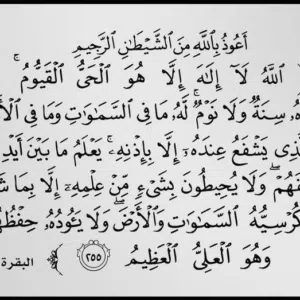 أَعُوذُ بِٱللَّهِ مِنَ ٱلشَّيْطَٰنِ ٱلرَّجِيمِ
ٱللَّهُ لَآ إِلَٰهَ إِلَّا هُوَ ٱلْحَىُّ ٱلْقَيُّومُ ۚ
سِنَةٌ وَلَا نَوْمٌ ۚ لَّهُۥ مَا فِى ٱلسَّمَٰوَٰتِ وَمَا فِى
يَشْفَعُ عِندَهُۥٓ إِلَّا بِإِذْنِهِۦ ۚ يَعْلَمُ مَا بَيْنَ
وَلَا يُحِيطُونَ بِشَىْءٍ مِّنْ عِلْمِهِۦٓ إِلَّا بِمَا
كُرْسِيُّهُ ٱلسَّمَٰوَٰتِ وَٱلْأَرْضَ ۖ وَلَا يَـُٔودُهُۥ
وَهُوَ ٱلْعَلِىُّ ٱلْعَظِيمُ ٢٥٥ البقرة